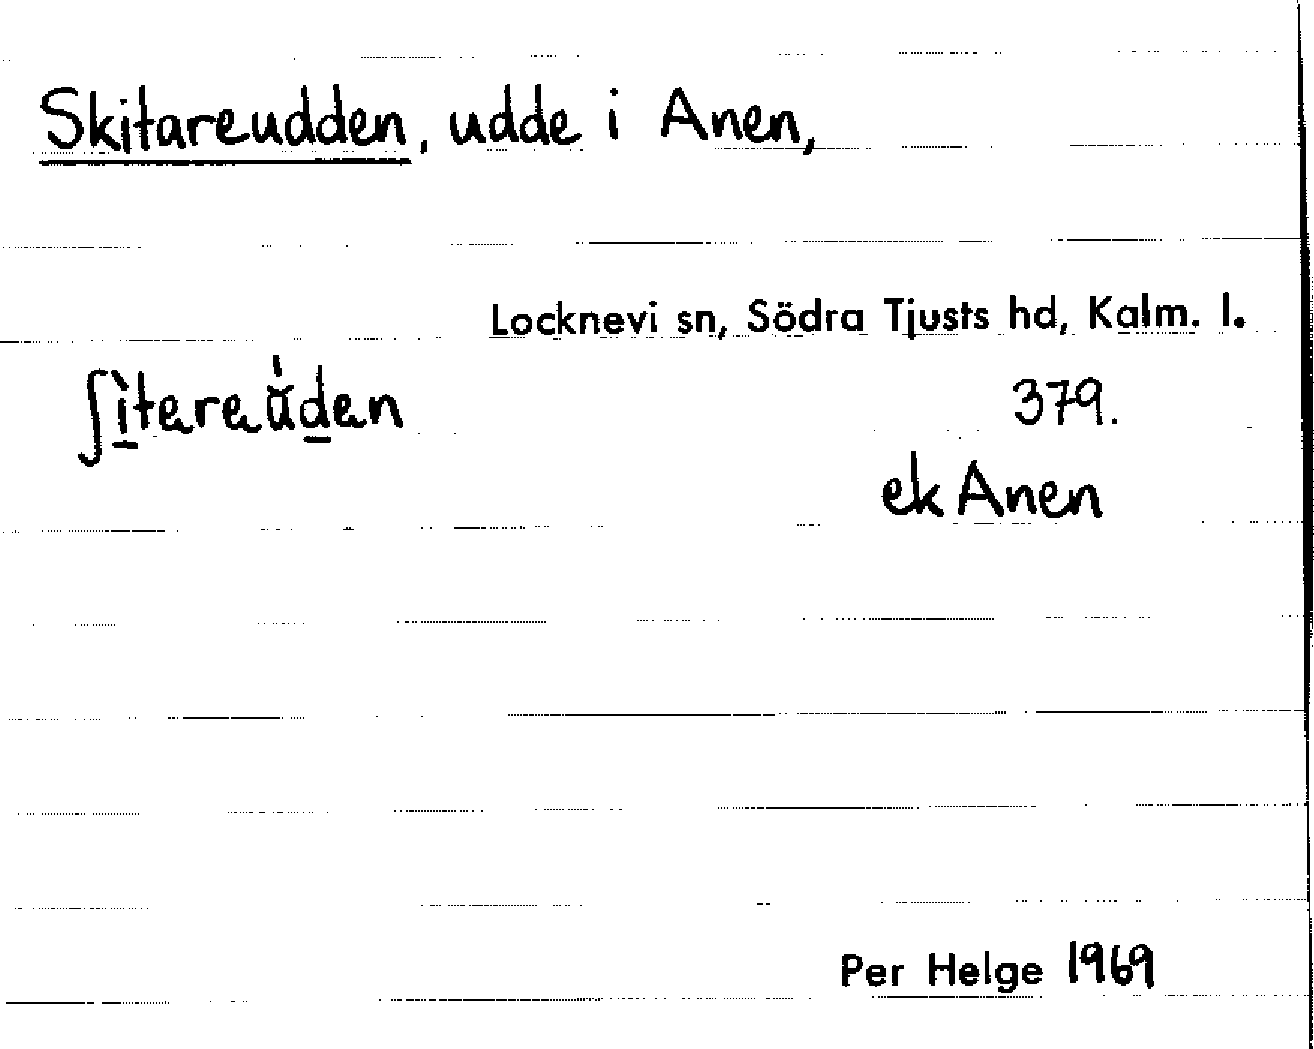 Skitareudden, udde i Anen,
Locknevi sn, Södra Tjusts hd, Kalm. l.
ʃì̱tarau̍̈ḏan 379.
ek Anen
Per Helge 1969